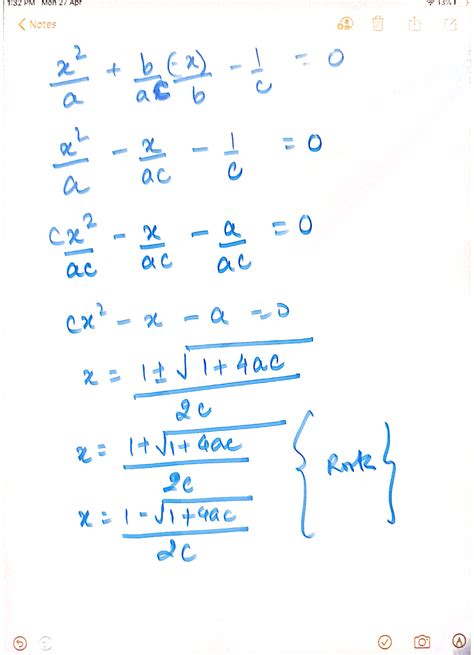 1:32 PM Mon 27 Apr 13%
Notes
x²/a + b/ac (-x)/b - 1/c = 0
x²/a - x/ac - 1/c = 0
cx²/ac - x/ac - a/ac = 0
cx² - x - a = 0
x = 1±√1+4ac/2c
x = 1+√1+4ac/2c
x = 1-√1+4ac/2c
{ Roots }